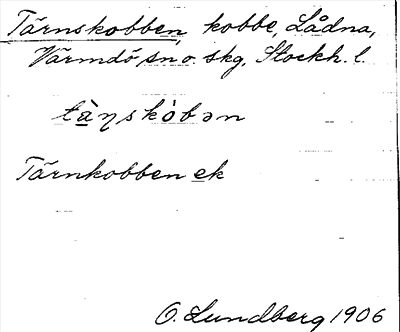 Tärnskobben, kobbe, Lådna,
Värmdö sn o. skg, Stockh. l.
tà̤ɳskòbən
Tärnkobben ek
O. Lundberg 1906